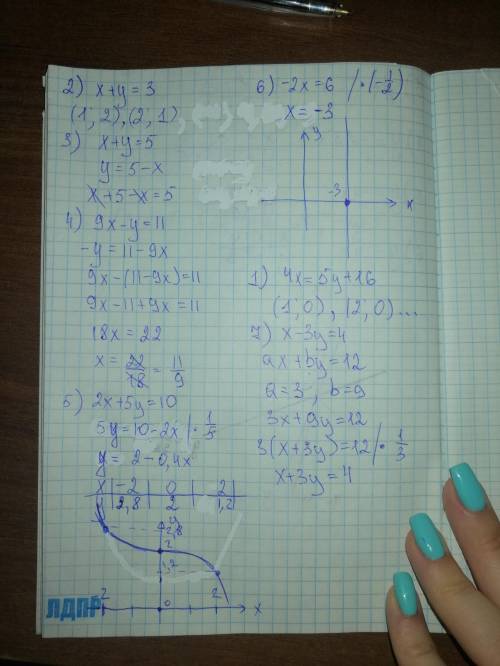 2) x+y=3
(1; 2), (2; 1)
3) x+y=5
y=5-x
x+5-x=5
4) 9x-y=11
-y=11-9x
9x-(11-9x)=11
9x-11+9x=11
18x=22
x= 22/18 = 11/9
5) 2x+5y=10
5y=10-2x | · 1/5
y= 2-0,4x
x | -2 | 0 | 2 |
y | 2,8 | 2 | 1,2 |
y
2,8
2
1,2
-2 0 2 x
ЛДПР
6) -2x=6 / · (-1/2)
x=-3
y
-3 x
1) 4x=5y+16
(1; 0), (2; 0)...
7) x-3y=4
ax+by=12
a=3, b=9
3x+9y=12
3(x+3y)=12 | · 1/3
x+3y=4